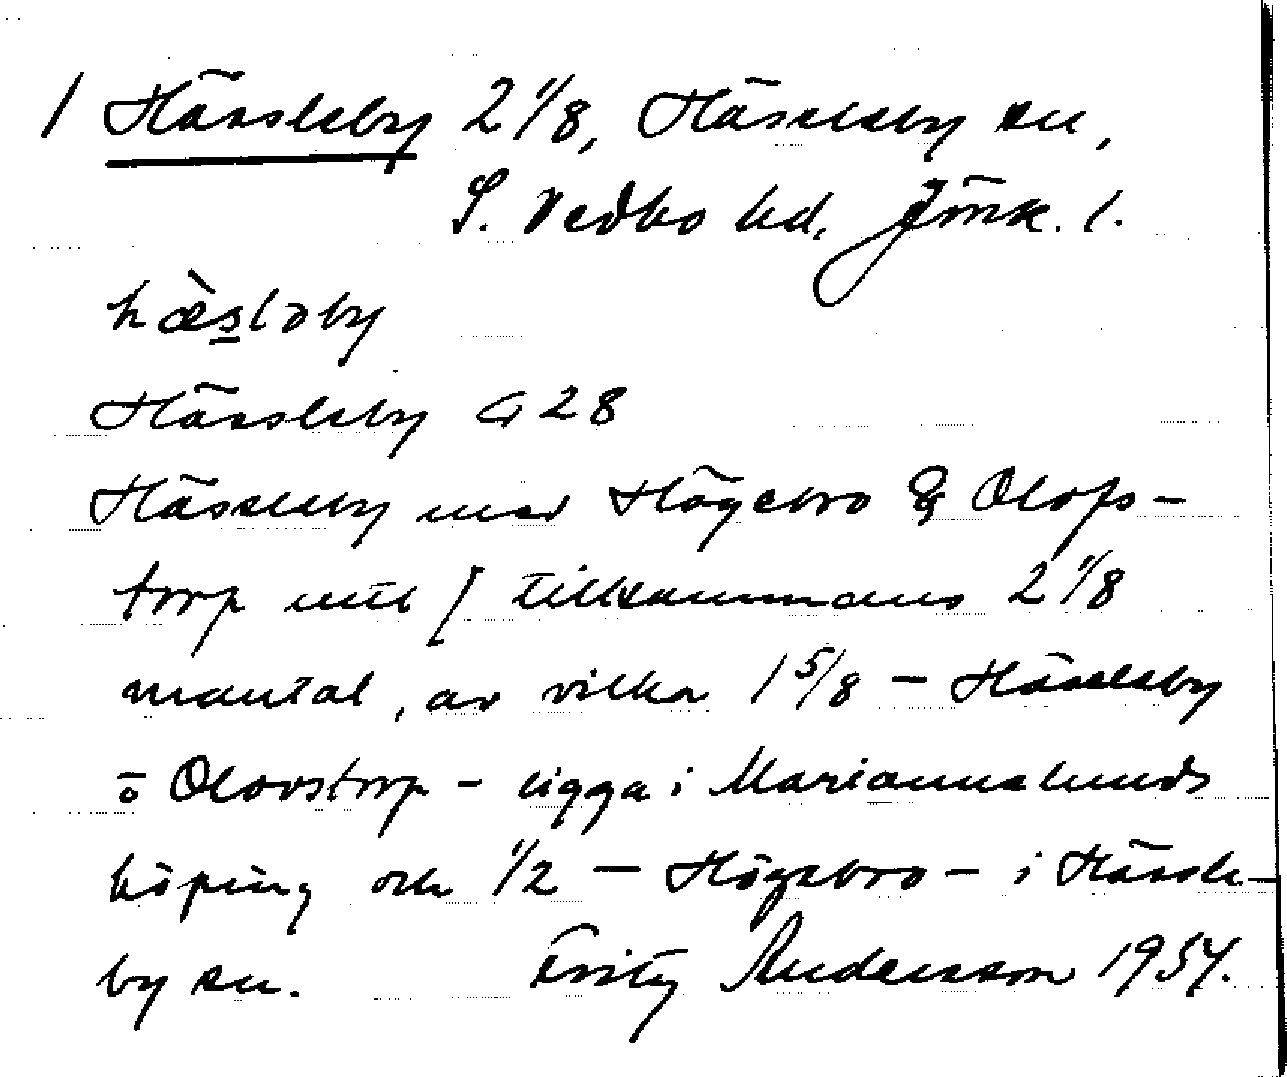 1 Hässleby 2 1/8, Hässleby sn,
S. Vedbo hd, Jönk. l.
hæ̀s̲ləby
Hässleby G 28
Hässleby med Högebro & Olofs-
torp utit [ tillsammans 2 1/8
mantal, av vilka 1 5/8 – Hässleby
o Olovstorp – ligga i Mariannelunds
köping och 1/2 – Högebro – i Hässle-
by sn. Fritz Andersson 1954.